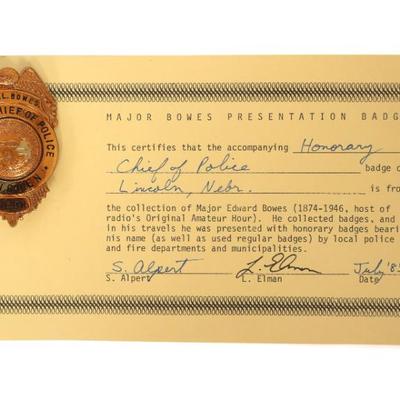 L. BOWES
CHIEF OF POLICE
MAJOR BOWES PRESENTATION BADG
This certifies that the accompanying Honorary
Chief of Police badge o
Lincoln, Nebr. is fro
the collection of Major Edward Bowes (1874-1946, host of
radio's Original Amateur Hour). He collected badges, and
in his travels he was presented with honorary badges beari
his name (as well as used regular badges) by local police
and fire departments and municipalities.
S. Alpert L. Elman July '8
S. Alpert L. Elman Date